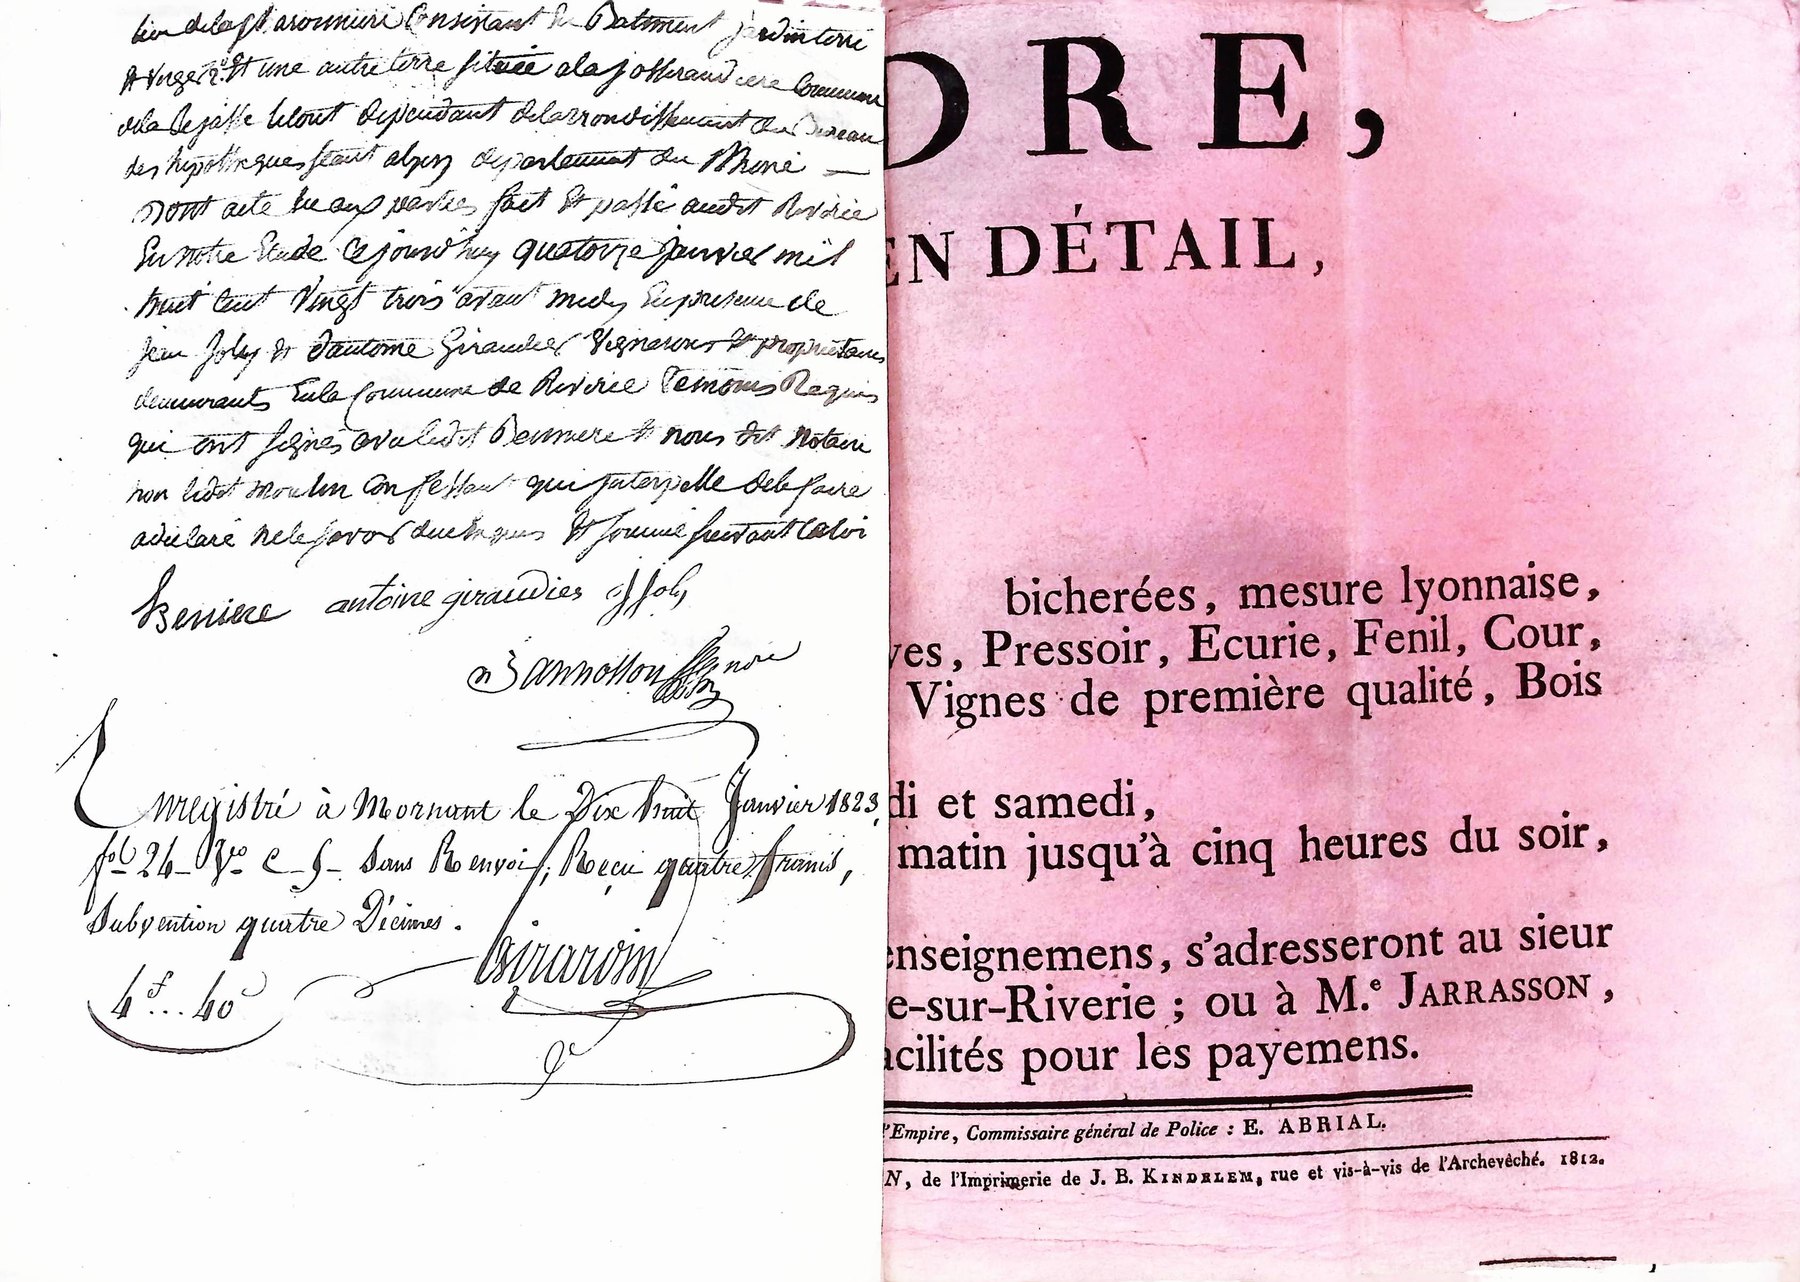 Consistant En Batiment jardin terre
Et Verger 2º Et une autre terre située a la josserandiere Commune
de la Rejasse le tout dependant de larrondissement du Bureau
des hypotheques séant a lyon departement du Rhone —
Dont acte lu aux parties fait Et passé audit Riverie
En notre Etude Cejourd'huy quatorze janvier mil
huit Cent Vingt trois avant midy En presence de
jean Joly Et d'antoine Giraudier Vignerons Et propriétaires
demeurants En la Commune de Riverie Temoins Requis
qui ont signés avec ledit Et nous dit Notaire
non ledit Moulin Confessant qui interpellé de le faire
a déclaré ne le savoir Et sommé suivant la loi
antoine giraudier J Joly
Jannosson nore
Enregistré à Mornant le Dix huit Janvier 1823,
fol 24 Vso C. 5 Sans Renvoi, Reçu quatre francs,
Subvention quatre Décimes.
Girardin
4f... 40c
DRE,
EN DÉTAIL,
bicherées, mesure lyonnaise,
ves, Pressoir, Ecurie, Fenil, Cour,
Vignes de première qualité, Bois
di et samedi,
matin jusqu'à cinq heures du soir,
enseignemens, s'adresseront au sieur
e-sur-Riverie ; ou à M.e JARRASSON,
acilités pour les payemens.
l'Empire, Commissaire général de Police : E. ABRIAL.
N, de l'Imprimerie de J. B. KINDELEM, rue et vis-à-vis de l'Archevêché. 1812.